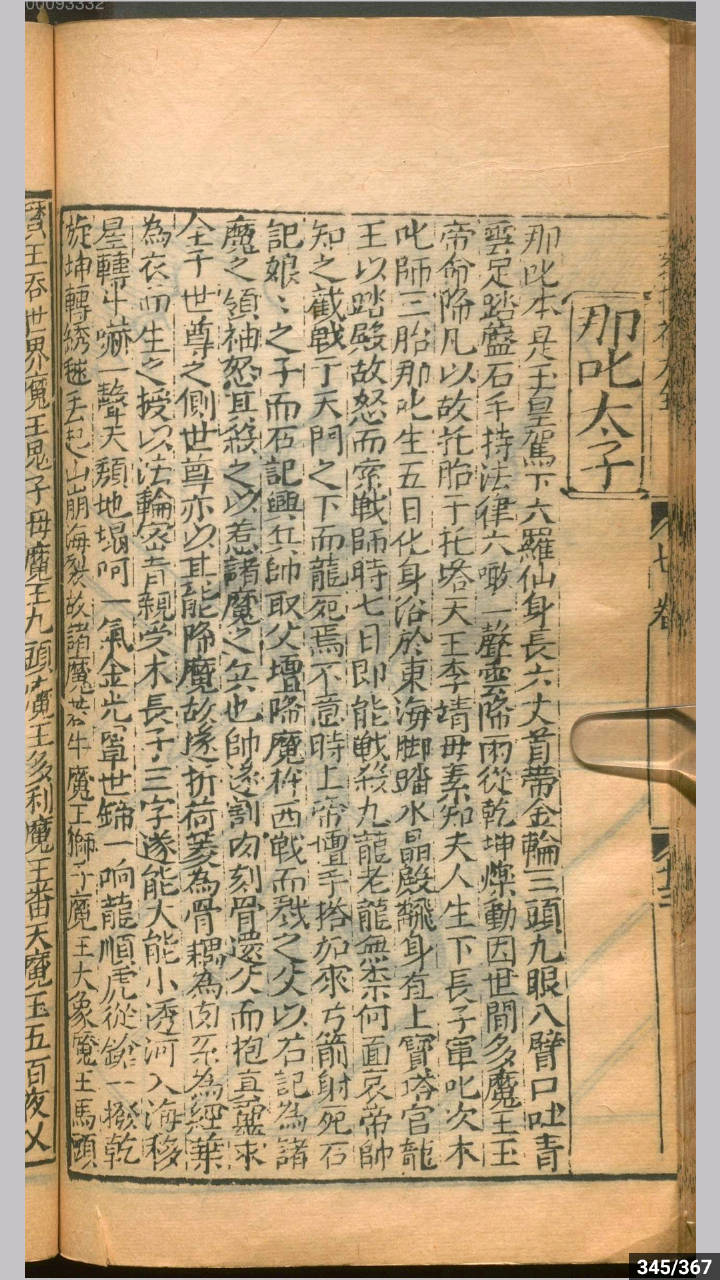 那叱太子
那叱本是玉皇駕下大羅仙身長六丈首帶金輪三頭九眼八臂口吐青
雲足踏盤石手持法律大噉一聲雲降雨從乾坤爍動因世間多魔王玉
帝命降凡以故托胎于托塔天王李靖母素知夫人生下長子軍叱次木
叱帥三胎那叱生五日化身浴於東海脚踏水晶殿飜身直上寶塔宮龍
王以踏殿故怒而索戰帥時七日即能戦殺九龍老龍無柰何而哀帝帥
知之截戰于天門之下而龍死焉不意時上帝壇手搭如來弓箭射死石
記娘〻之子而石記興兵帥取父壇降魔杵西戦而戮之父以石記為諸
魔之領袖怒其殺之以惹諸魔之兵也帥遂割肉刻骨還父而抱真靈求
全于世尊之側世尊亦以其能降魔故遂折荷菱為骨耦為肉系為經葉
為衣而生之授以法輪密旨親受木長子三字遂能大能小透河入海移
星轉斗嚇一聲天頹地塌呵一氣金光罩世鎚一响龍順虎從鎗一撥乾
旋坤轉綉毬丢起山崩海裂故諸魔若牛魔王獅子魔王大象魔王馬頭
魔王吞世界魔王鬼子母魔王九頭魔王多利魔王番天魔王五百夜乂
七卷
十三
00093332
345/367